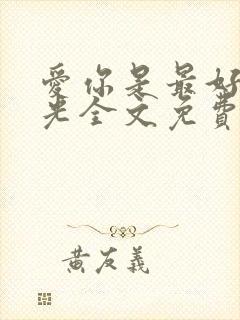 愛你是最好
光全文免費
黃友義